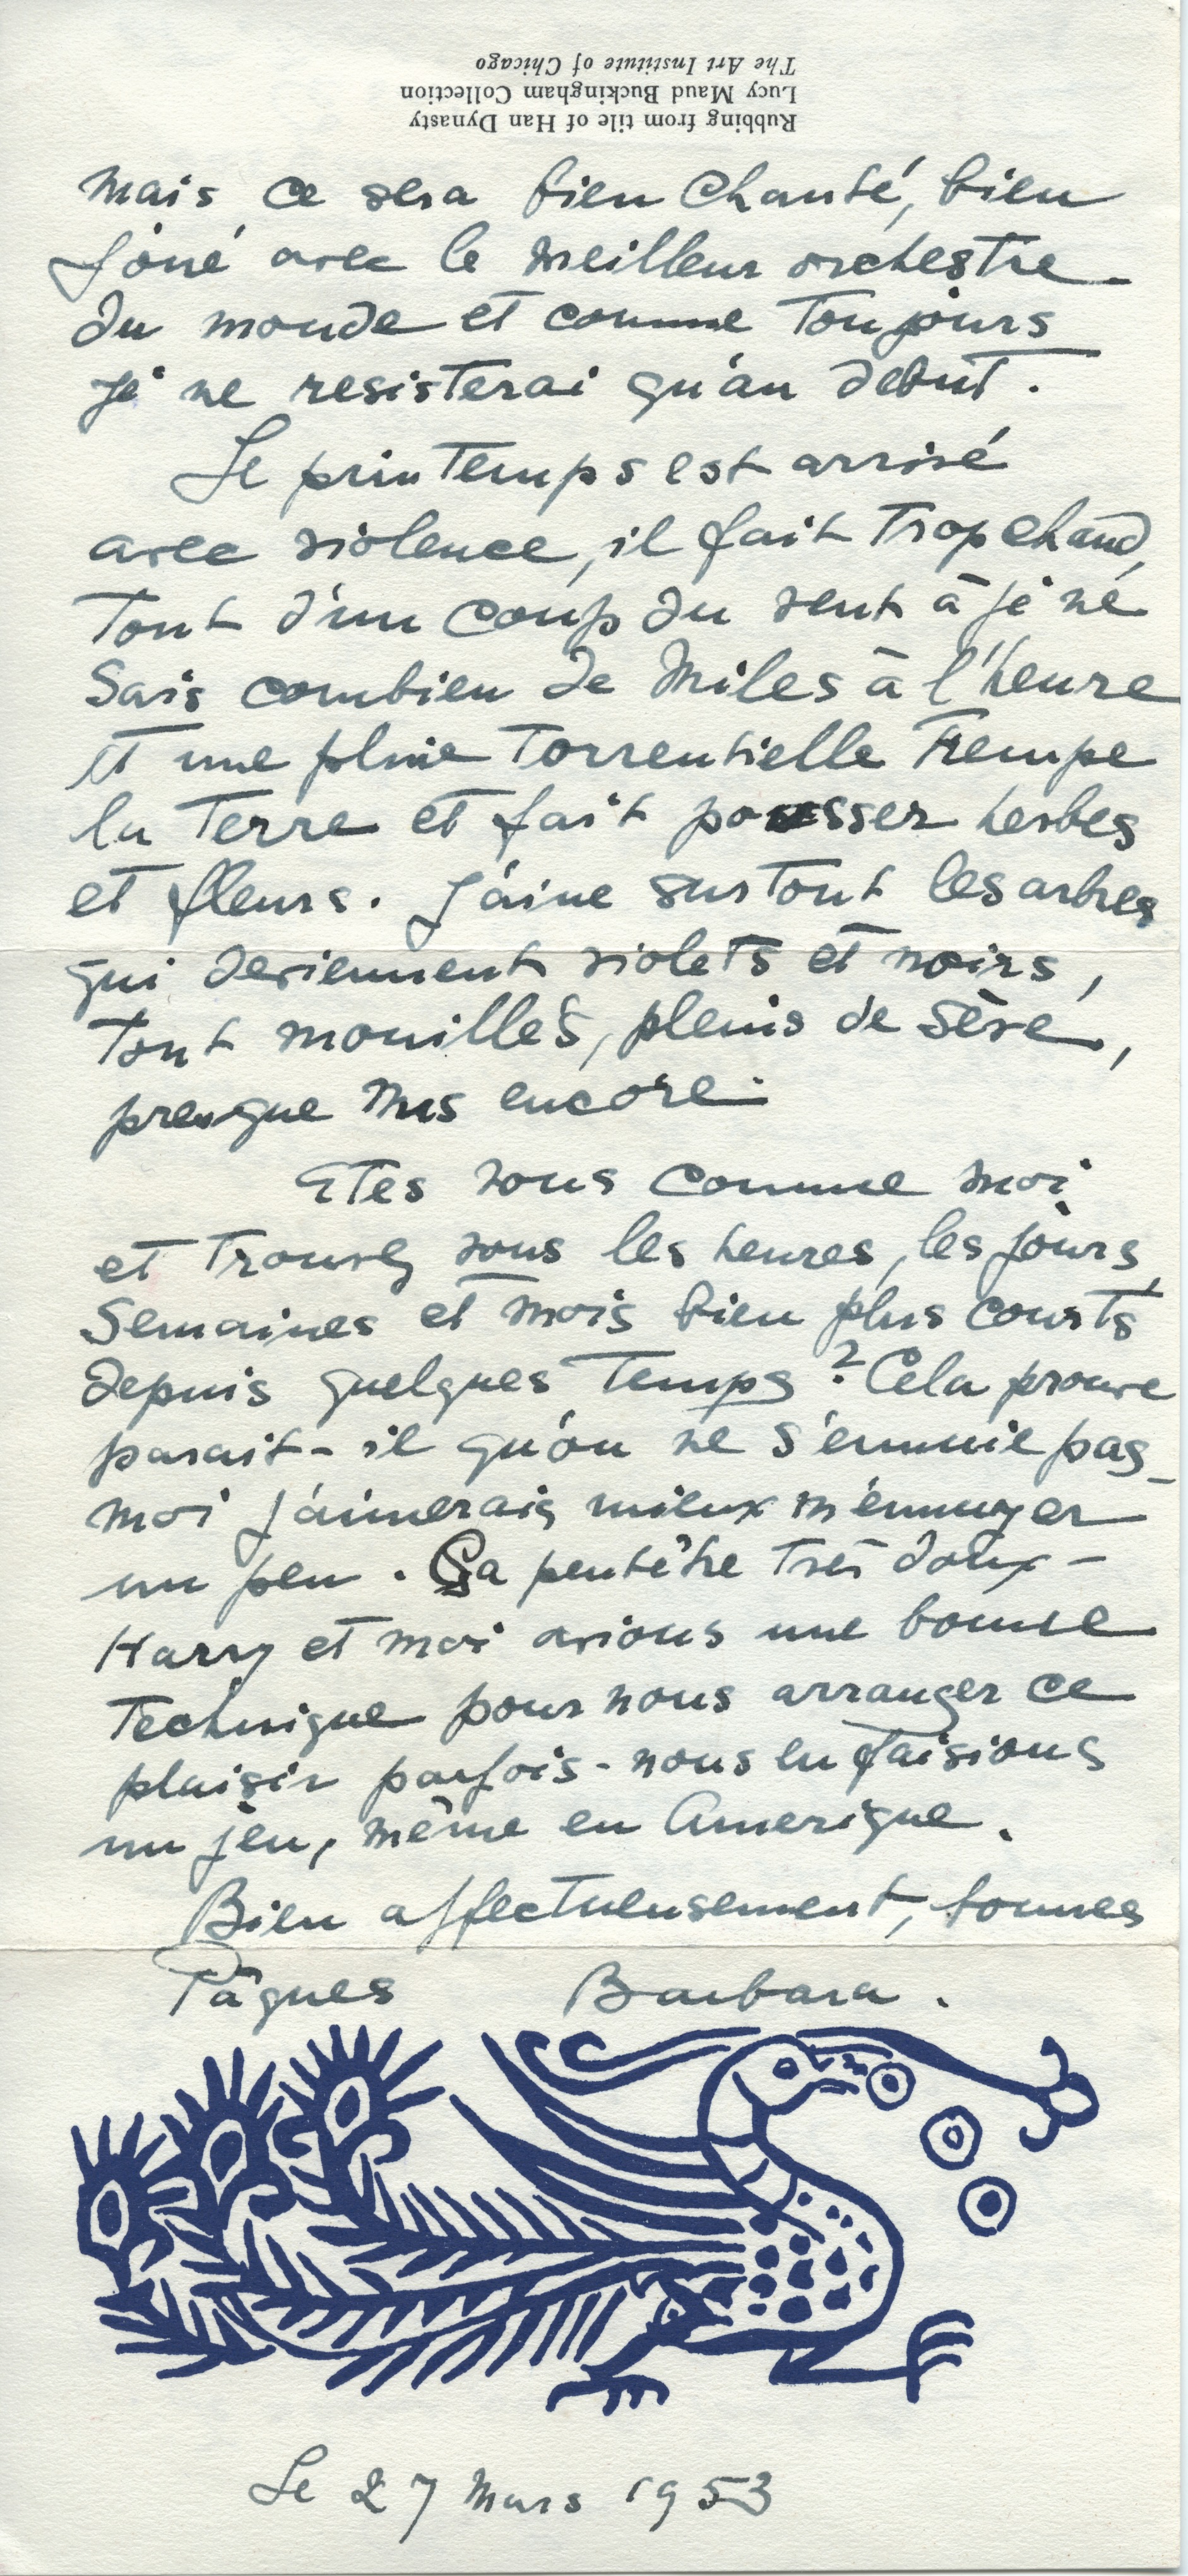 Rubbing from tile of Han Dynasty
Lucy Maud Buckingham Collection
The Art Institute of Chicago
mais ce sera bien chanté, bien
joué avec le meilleur orchestre
du monde et comme toujours
je ne resisterai qu'au debut.
Le printemps est arrivé
avec violence, il fait trop chaud,
tout d'un coup du vent à je ne
sais combien de miles à l'heure
et une pluie torrentielle trempe
la terre et fait pousser herbes
et fleurs. J'aime surtout les arbres
qui deviennent violets et noirs,
tout mouillés, pleins de sève,
presque nus encore.
Etes vous comme moi
et trouvez vous les heures, les jours,
semaines et mois bien plus courts
depuis quelques temps? Cela prouve
parait-il qu'on ne s'ennuie pas -
moi j'aimerais mieux m'ennuyer
un peu. Ça peut être très doux -
Harry et moi avions une bonne
technique pour nous arranger ce
plaisir parfois - nous en faisions
un jeu, même en Amerique.
Bien affectueusement, bonnes
Pâques Barbara.
Le 27 mars 1953